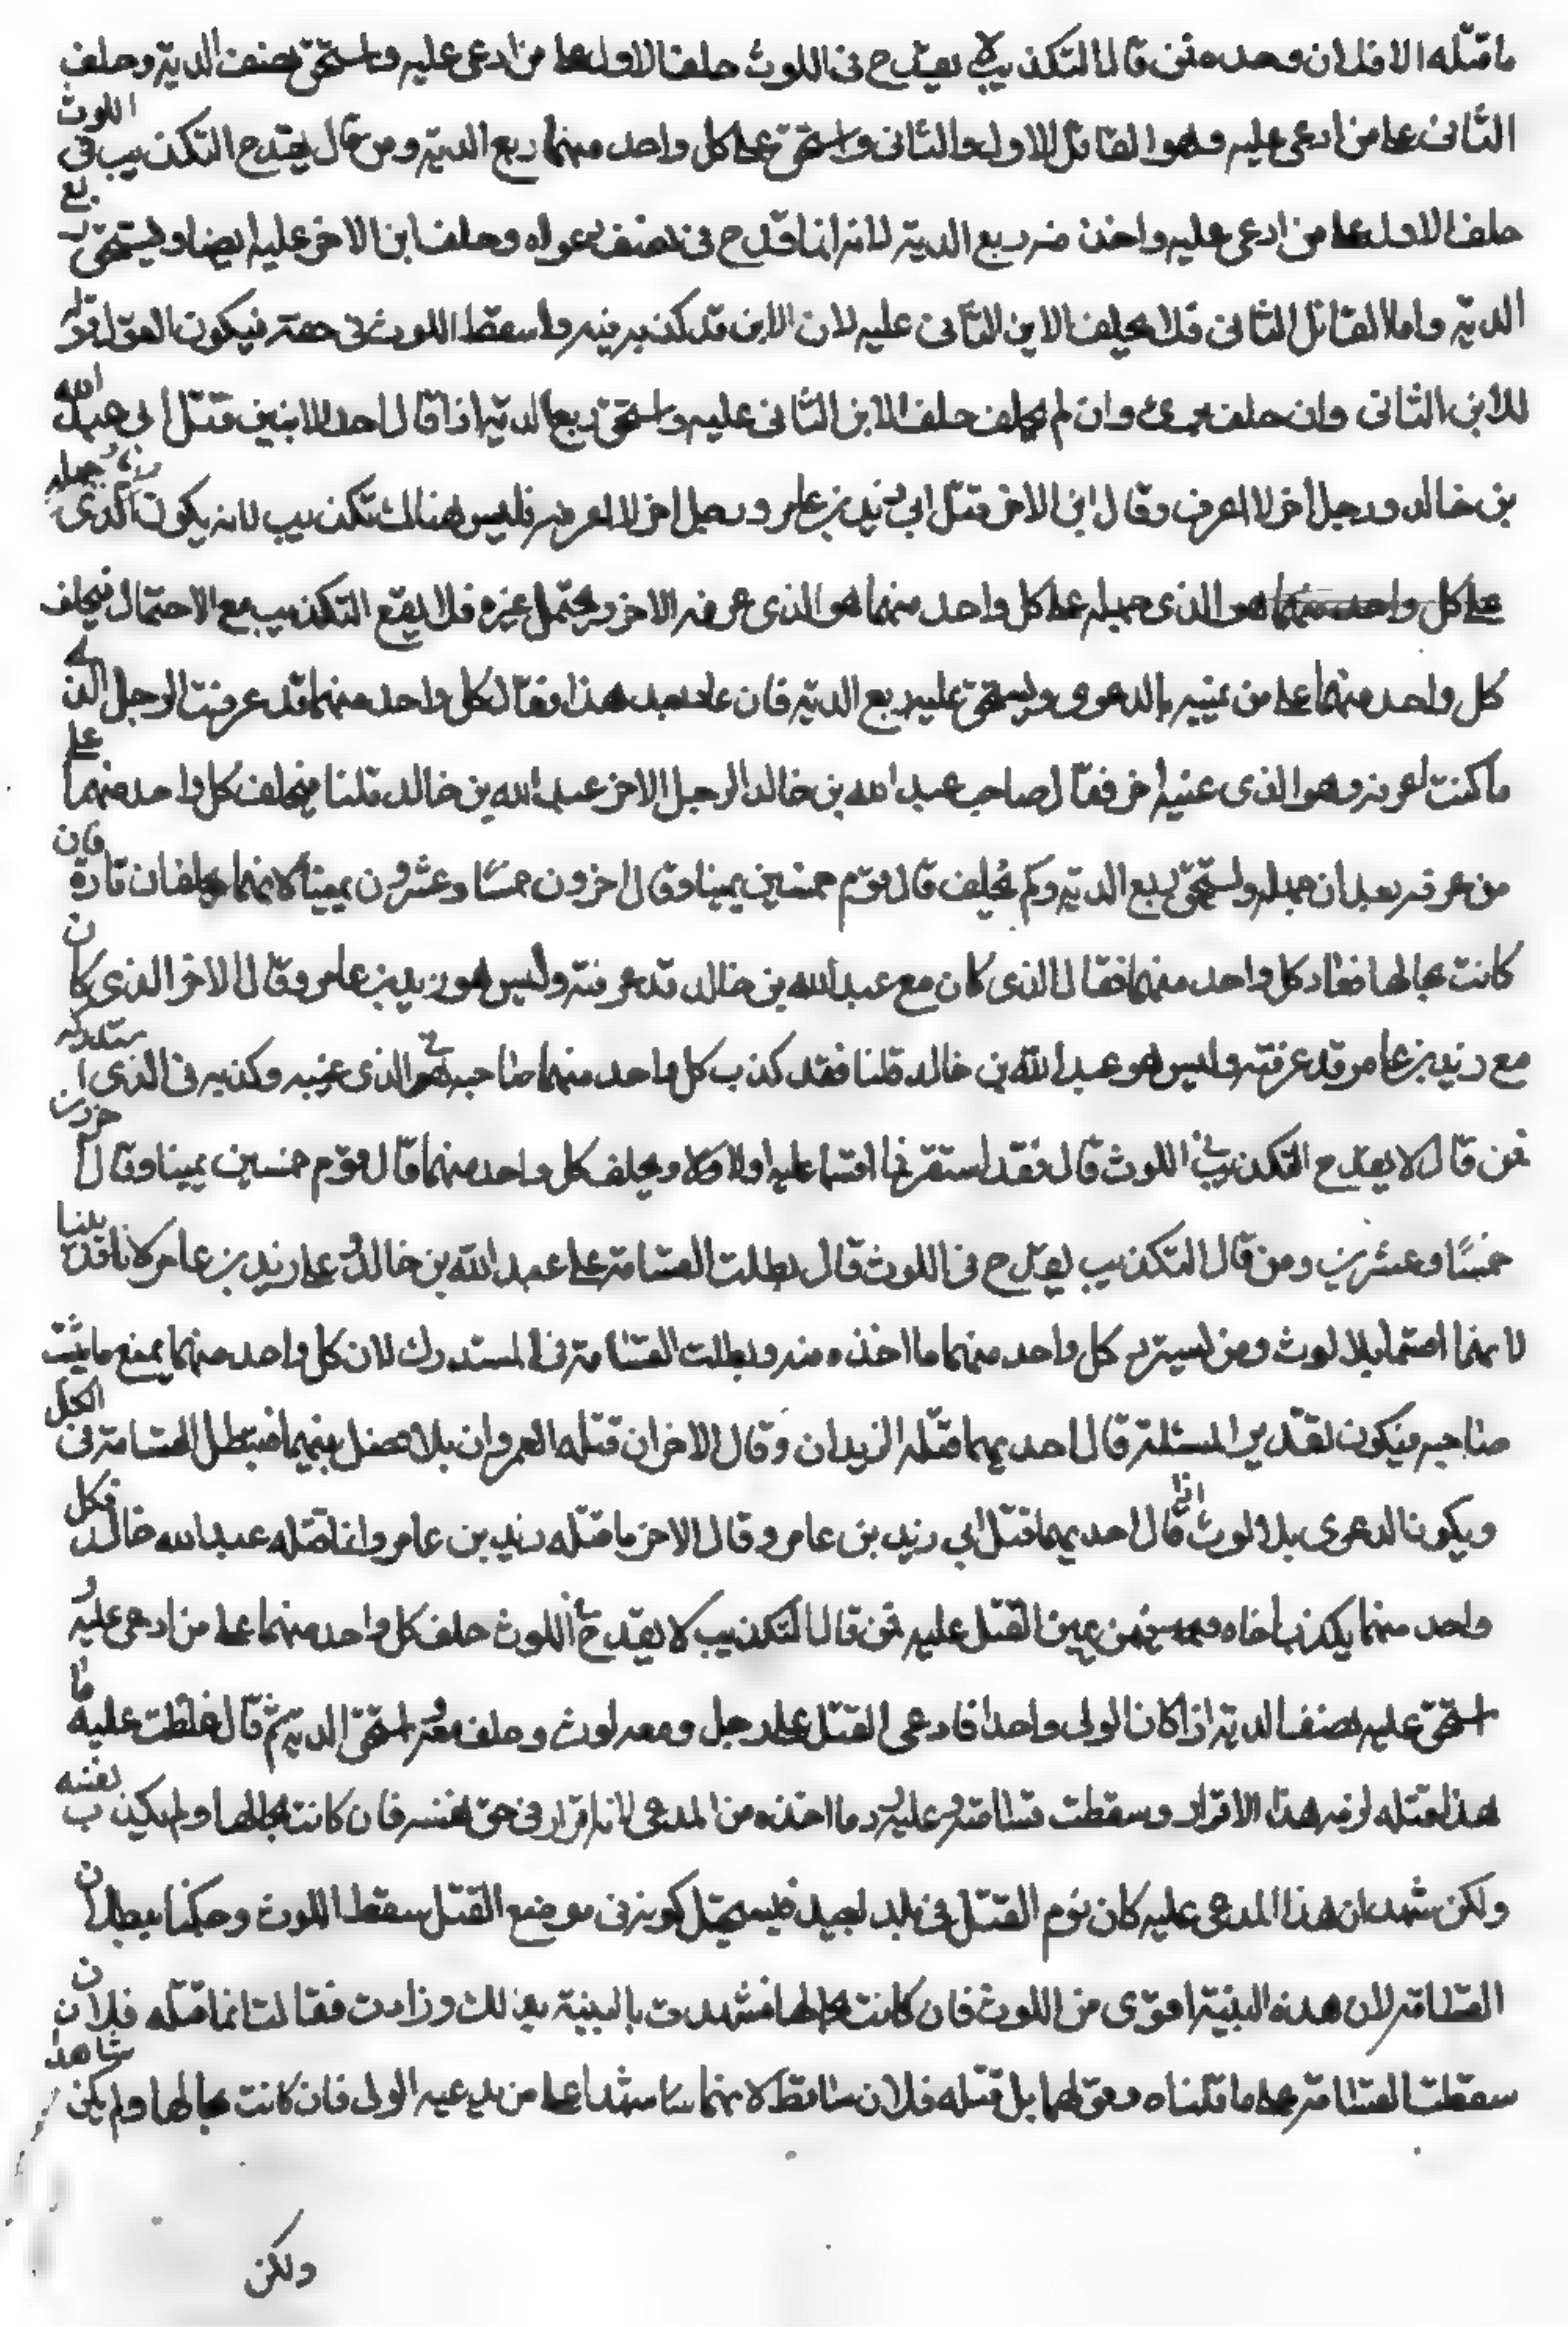 ما قتله الا فلان وحده فمن قال التكذيب لا يقدح في اللوث حلف الاول على من ادعى عليه واستحق نصف الدية وحلف
الثاني على من ادعى عليه وهو القاتل الاول والثاني واستحق على كل واحد منهما ربع الدية ومن قال يقدح التكذيب في اللوث
حلف الاول على من ادعى عليه واخذ منه ربع الدية لانه انما اقدح في نصف دعواه وحلف ابن الاخر عليه ايضا ويستحق ربع
الدية واما القاتل الثاني فلا يحلف الابن الثاني عليه لان الابن قد كذبه فيه واسقط اللوث في حقه فيكون القول قوله
للابن الثاني وان حلف برئ وان لم يحلف حلف الابن الثاني عليه واستحق ربع الدية اذا قال احد الابنين قتل ابي عبد الله
بن خالد ورجل اخر لا اعرفه وقال ابن الاخر قتل ابي زيد بن عامر ورجل اخر لا اعرفه فليس هناك تكذيب لانه يكون الذي جهله
على كل واحد منهما هو الذي جهله على كل واحد منهما هو الذي عرفه الاخر ويحتمل غيره فلا يقع التكذيب مع الاحتمال فيحلف
كل واحد منهما على من عينه بالدعوى ويستحق عليه ربع الدية فان عاد بعد هذا فقال كل واحد منهما قد عرفت الرجل الذي
ما كنت اعرفه وهو الذي عنيه اخر فقال صاحب عبد الله بن خالد الرجل الاخر عبد الله بن خالد قلنا فيحلف كل واحد منهما على
من عرفه بعد ان جهله ويستحق ربع الدية وكم يحلف قال قوم خمسين يمينا وقال اخرون خمسا وعشرون يمينا لانهما يحلفان تارة فان
كانت بحالها فعاد كل واحد منهما فقال الذي كان مع عبد الله بن خالد قد عرفته وليس هو زيد بن عامر وقال الاخر الذي كان
مع زيد بن عامر قد عرفته وليس هو عبد الله بن خالد قلنا فقد كذب كل واحد منهما صاحبه في الذي عينه وكذبه في الذي استدركه
فمن قال لا يقدح التكذيب في اللوث قال فقد استقر ما اقسما عليه اولا ويحلف كل واحد منهما قال قوم خمسين يمينا وقال اخرون
خمسا وعشرين ومن قال التكذيب يقدح في اللوث قال بطلت القسامة على عبد الله بن خالد وعلى زيد بن عامر لانا قد بينا
لانهما اقسما بلا لوث ومن يسترد كل واحد منهما ما اخذه منه وبطلت القسامة في المستدرك لان كل واحد منهما يمنع ما يثبت
صاحبه فيكون تقدير المسئلة قال احديهما قتله الزيدان وقال الاخر ان قتله العمروان بلا فصل بينهما فتبطل القسامة في الكل
ويكون الدعوى بلا لوث اذا قال احديهما قتل ابي زيد بن عامر وقال الاخر ما قتله زيد بن عامر وانما قتله عبد الله خالد فكل
واحد منهما يكذب اخاه فيمن عين القتل عليه فمن قال التكذيب لا يقدح في اللوث حلف كل واحد منهما على من ادعى عليه و
استحق عليه نصف الدية اذا كان الولي واحدا فادعى القتل على رجل ومعه لوث وحلف معه واستحق الدية ثم قال غلطت عليه ما
هذا قتله لزمه هذا الاقرار وسقطت قسامته وعليه رد ما اخذه من المدعى لانه اقرار في حق نفسه فان كانت بحالها ولم يكذب نفسه
ولكن شهد ان هذا المدعى عليه كان يوم القتل في بلد بعيد فيستحيل كونه في موضع القتل سقط اللوث وحكمنا ببطلان
القسامة لان هذه البينة اقوى من اللوث فان كانت بحالها فشهدت بالبينة بذلك وزادت فقالت انما قتله فلان
سقطت القسامة على ما قلناه وقولهما بل قتله فلان ساقط لانهما ما شهدا على من يدعيه الولي فان كانت بحالها ولم يكن شاهد
ولكن